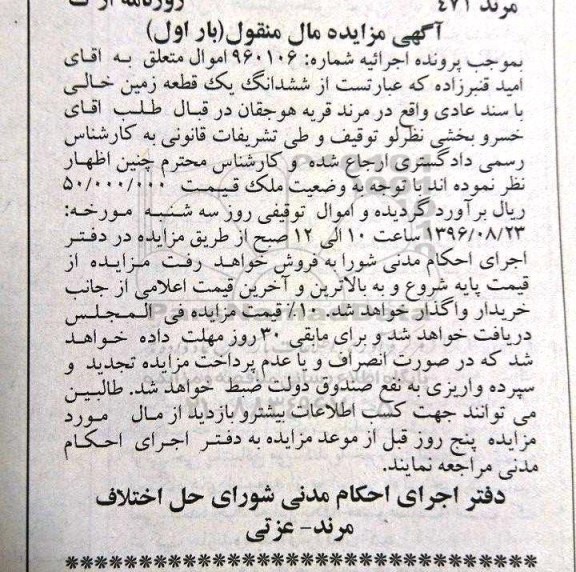 مرند ٤٧١
روزنامه ار
آگهی مزایده مال منقول(بار اول)
بموجب پرونده اجرائیه شماره: ۹۶۰۱۰۶ اموال متعلق به اقای
امید قنبرزاده که عبارتست از ششدانگ یک قطعه زمین خالی
با سند عادی واقع در مرند قریه هوجقان در قبال طلب اقای
خسرو بخشی نظرلو توقیف و طی تشریفات قانونی به کارشناس
رسمی دادگستری ارجاع شده و کارشناس محترم چنین اظهار
نظر نموده اند با توجه به وضعیت ملک قیمت ۵۰/۰۰۰/۰۰۰
ریال برآورد گردیده و اموال توقیفی روز سه شنبه مورخه:
۱۳۹۶/۰۸/۲۳ ساعت ۱۰ الی ۱۲ صبح از طریق مزایده در دفتر
اجرای احکام مدنی شورا به فروش خواهد رفت مزایده از
قیمت پایه شروع و به بالاترین و آخرین قیمت اعلامی از جانب
خریدار واگذار خواهد شد. ۱۰٪ قیمت مزایده فی المجلس
دریافت خواهد شد و برای مابقی ۳۰ روز مهلت داده خواهد
شد که در صورت انصراف و یا عدم پرداخت مزایده تجدید و
سپرده واریزی به نفع صندوق دولت ضبط خواهد شد. طالبین
می توانند جهت کسب اطلاعات بیشترو بازدید از مال مورد
مزایده پنج روز قبل از موعد مزایده به دفتر اجرای احکام
مدنی مراجعه نمایند.
دفتر اجرای احکام مدنی شورای حل اختلاف
مرند- عزتی